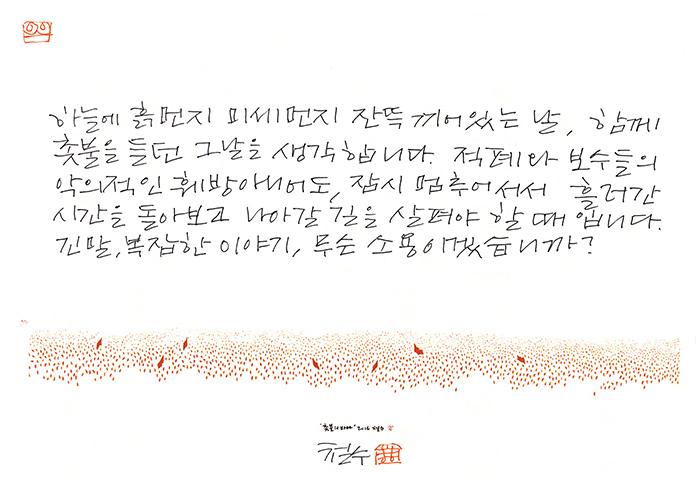 하늘에 흙먼지 미세먼지 잔뜩 끼어있는 날, 함께
촛불을 들던 그날을 생각합니다. 적폐라 보수들의
악의적인 훼방아니어도, 잠시 멈추어서서 흘러간
시간을 돌아보고 나아갈 길을 살펴야 할 때입니다.
긴말, 복잡한 이야기, 무슨 소용이겠습니까?
'촛불의 바다' 2016 철수
철수